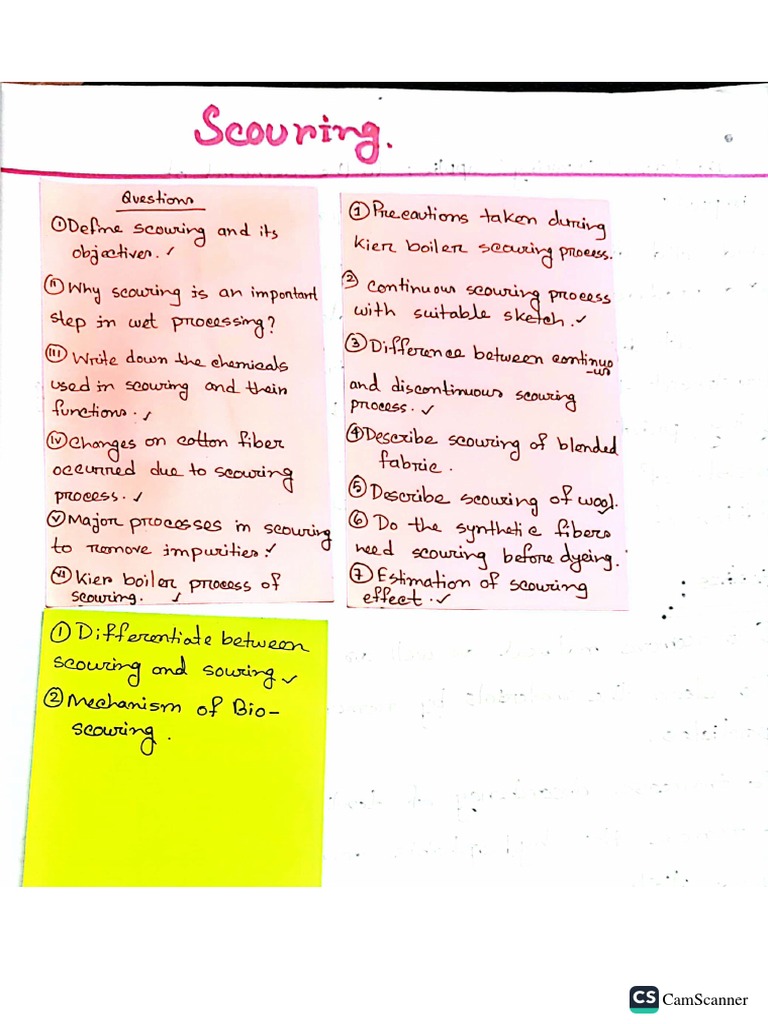 Scouring.
Questions
(i) Define scouring and its
objectives. ✓
(ii) Why scouring is an important
step in wet processing?
(iii) Write down the chemicals
used in scouring and their
functions. ✓
(iv) Changes on cotton fiber
occurred due to scouring
process. ✓
(v) Major processes in scouring
to remove impurities. ✓
(vi) Kier boiler process of
scouring. ✓
(1) Precautions taken during
kier boiler scouring process.
(2) Continuous scouring process
with suitable sketch. ✓
(3) Difference between continuo
-us
and discontinuous scouring
process. ✓
(4) Describe scouring of blended
fabric.
(5) Describe scouring of wool. ✓
(6) Do the synthetic fibers
need scouring before dyeing.
(7) Estimation of scouring
effect. ✓
(1) Differentiate between
scouring and souring ✓
(2) Mechanism of Bio-
scouring.
CS CamScanner